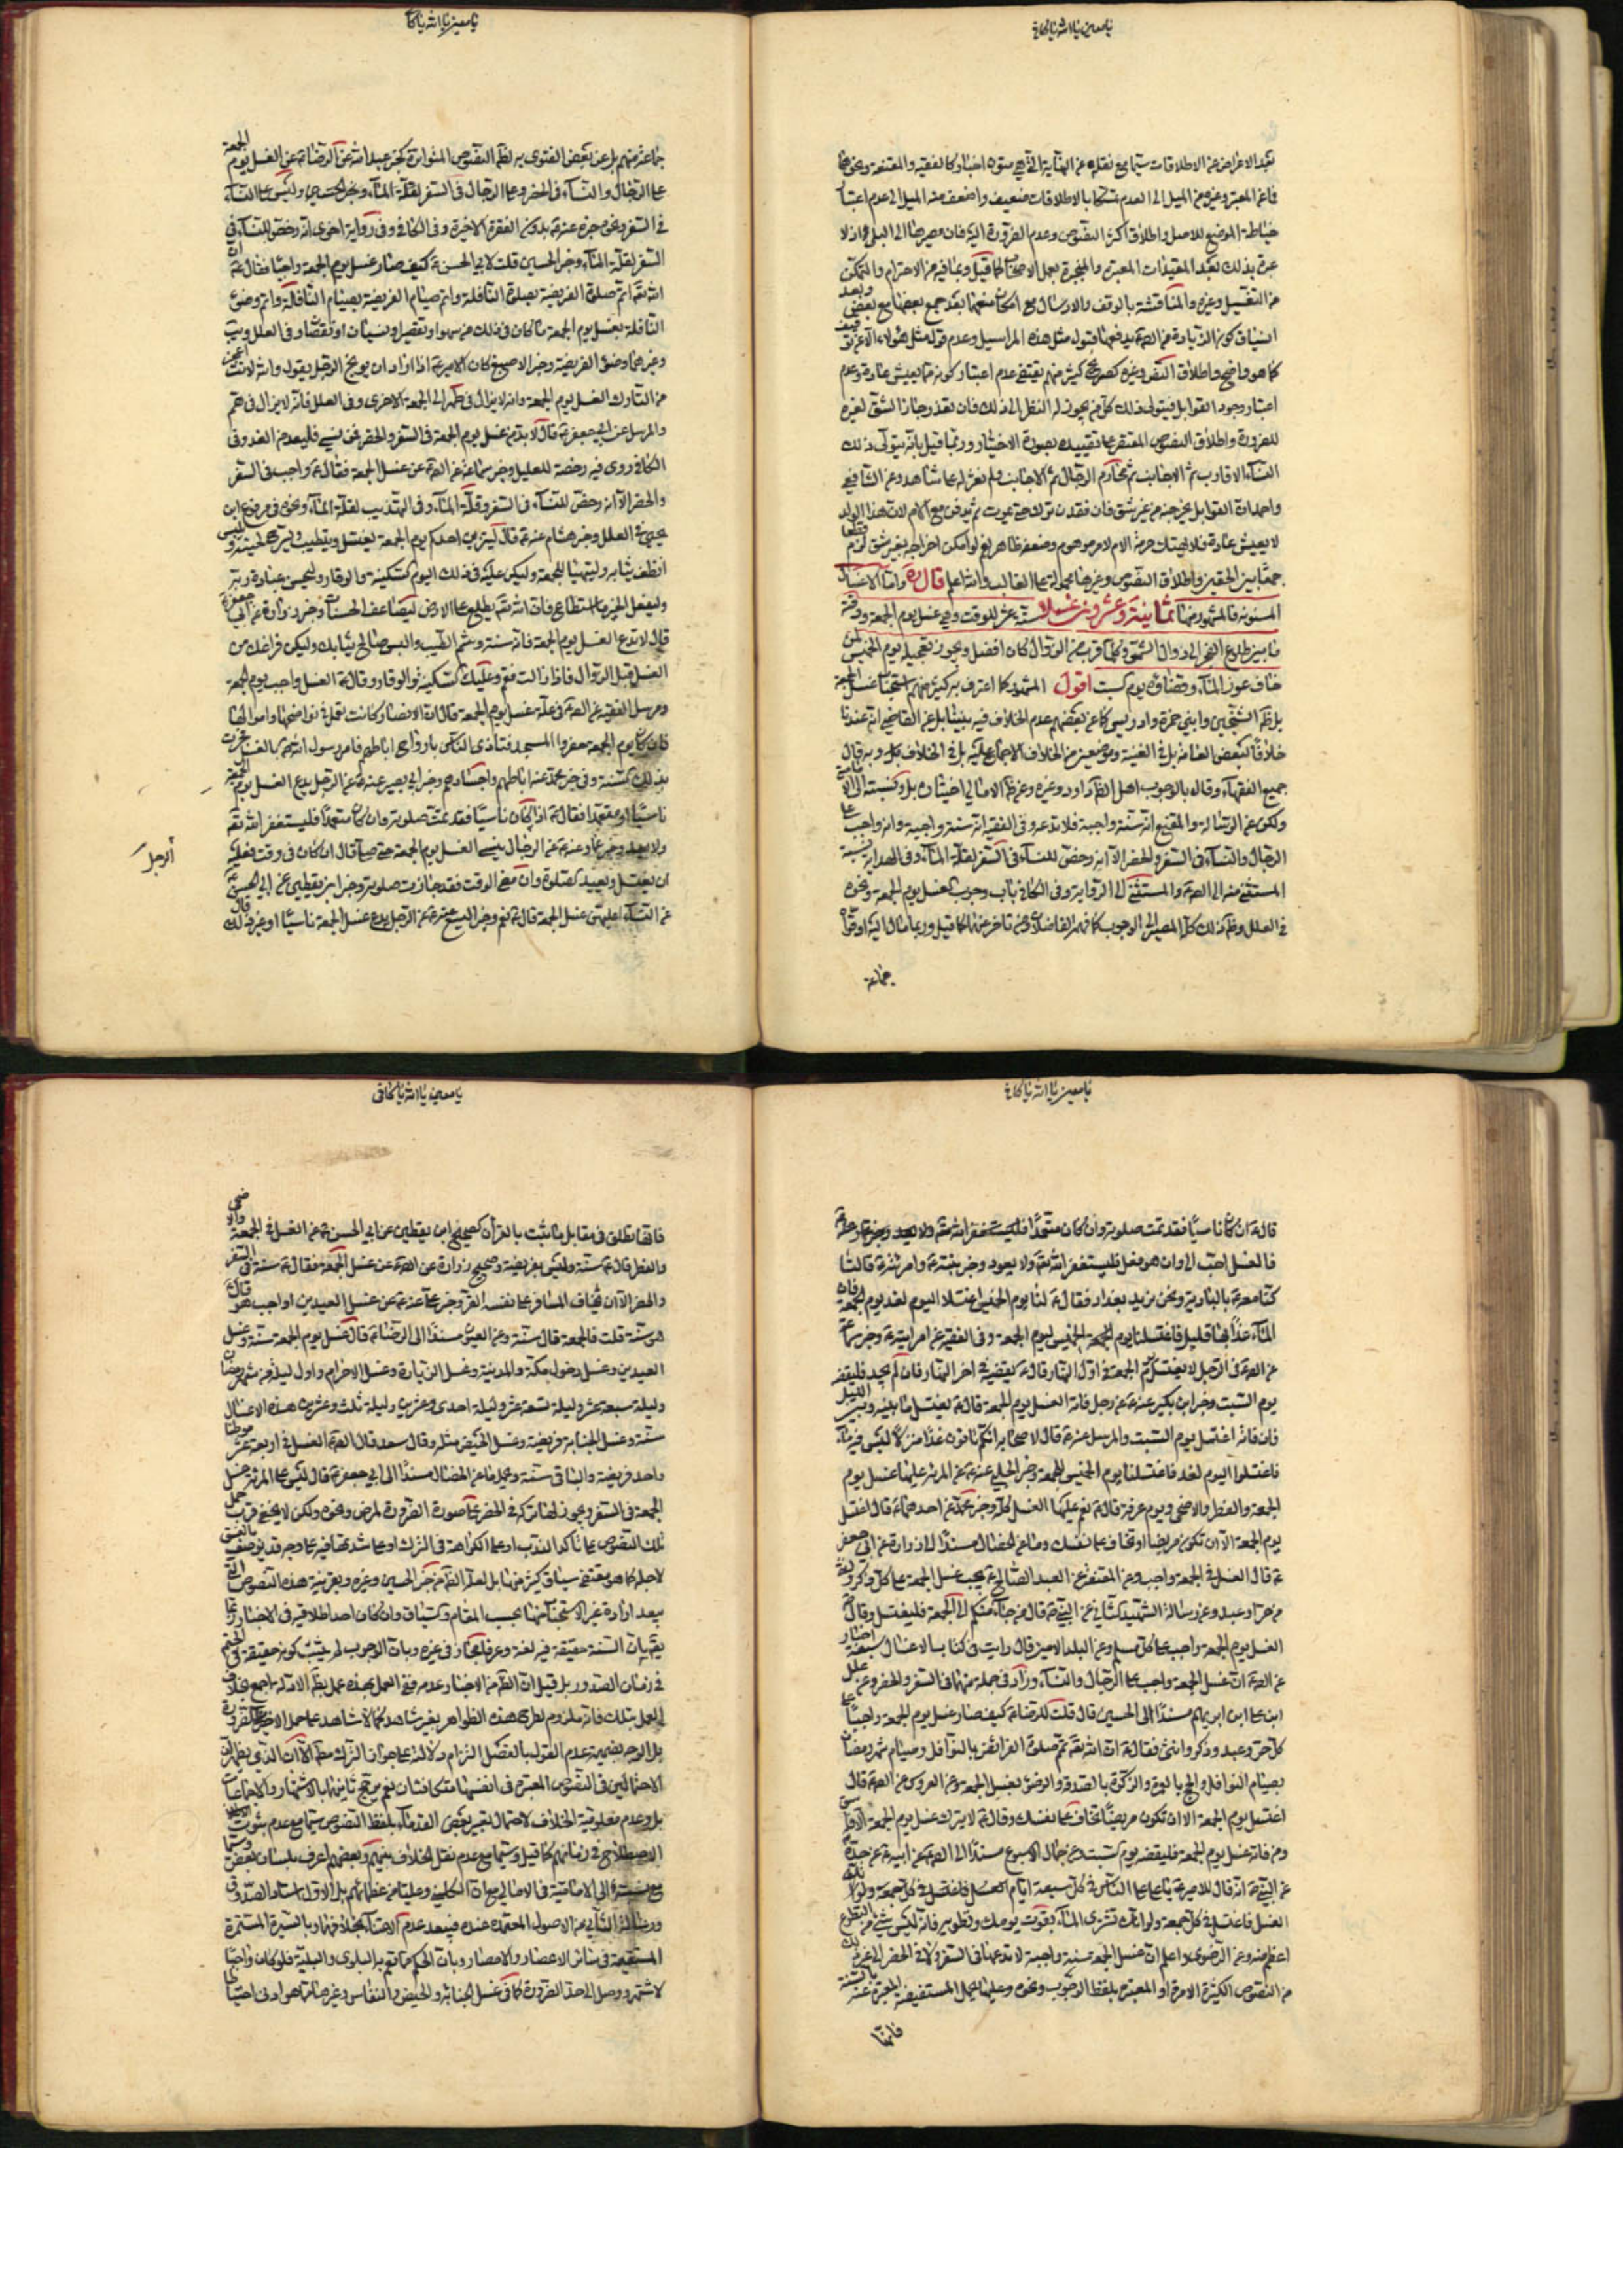 يا معين يا الله يا كافي
بعد الاعراض عن الاطلاقات سيما مع نقله عن النهاية التي هي متون اخبار كالفقيه والمقنعة ونحوها
فاعن المعتبر وغيره من الميل الى العدم تمسكا بالاطلاقات ضعيف واضعف منه الميل الى عدم اعتبار
خياطة الموضع للاصل واطلاق اكثر النصوص وعدم الضرورة اليه فان مصيرها الى البلى اذ لا
عبرة بذلك بعد المقيدات المعتبرة والمنجبرة بعمل الاصحاب كما قيل وبمنافيه من الاحترام والتمكن
من التغسيل وغيره والمناقشة بالوقف والارسال مع امكان منعهما بعد جمع بعضها مع بعض وبعد
انسياق كون الزيادة من قبول مثل هذه المراسيل وعدم قوله مثل هؤلاء الا عن توقيف
كما هو واضح واطلاق النص وغيره كصريح كثير منهم يقتضي عدم اعتبار كونه مما يعيش عادة وعدم
اعتبار وجود القوابل فيتولى ذلك كل من يجوز له النظر الى ذلك فان تعذر جاز الشق لغيره
للضرورة واطلاق النصوص المقتصر على تقييده بصورة الاختيار وربما قيل بانه يتولى ذلك
النساء الاقارب ثم الاجانب ثم محارم الرجال ثم الاجانب ولم نعثر له على شاهد وعن الشافعي
واحمد ان القوابل يخرجنه من غير شق فان فقدن ترك حتى يموت ثم يدفن مع الام لان هذا الولد
لا يعيش عادة فلا يهتك حرمة الام لامر موهوم وضعفه ظاهر نعم لو امكن اخراجه بغير شق لزم قطعا
جمعا بين الحقين واطلاق النصوص وغيرها محمولة على الغالب والله اعلم قال ره واما الاغسال
المسنونة فالمشهور منها ثمانية وعشرون غسلا ستة عشر للوقت وهي غسل يوم الجمعة ووقته
ما بين طلوع الفجر الى زوال الشمس وكلما قرب من الزوال كان افضل ويجوز تعجيله يوم الخميس لمن
خاف عوز الماء وقضاؤه يوم السبت اقول المشهور كما اعترف به كثير منهم استحباب غسل الجمعة
بل ظ الشيخين وابني حمزة وادريس كما عن بعضهم عدم الخلاف فيه بيننا بل عن القاضي انه عندنا
خلافا لبعض العامة بل في الغنية وموضعين من الخلاف الاجماع عليه بل في الخلاف وبه قال
جميع الفقهاء وقال بالوجوب اهل الظ داود وغيره وعن ظ الامالي اختياره بل ونسبته الى الامامية
ولكن عن الرسالة والمقنع انه سنة واجبة فلا تدعه وفي الفقيه انه سنة واجبة وانه واجب على
الرجال والنساء في السفر والحضر الا انه رخص للنساء في السفر لقلة الماء وفي الهداية نسبة
المستثنى منه الى الصء والمستثنى الى الرواية وفي الكافي باب وجوب الغسل يوم الجمعة ونحوه
في العلل وظ ذلك كله المصير الى الوجوب كما فهمه الفاضلان ومن تاخر عنهما كما قيل وربما مال اليه او قواه
جماعة
يا معين يا الله يا كافي
جماعة منهم بل عن بعض الفتوى به لظ النصوص المتواترة كخبر عبد الله عن الرضا ع عن الغسل يوم الجمعة
على الرجال والنساء في الحضر وعلى الرجال في السفر لقلة الماء وخبر الحسين وليس على النساء
في السفر ونحوه خبره عنه ع بدون الفقرة الاخيرة وفي الكافي وفي رواية اخرى انه رخص للنساء في
السفر لقلة الماء وخبر الحسين قلت لابي الحسن ع كيف صار غسل يوم الجمعة واجبا فقال ع ان
الله تع اتم صلوة الفريضة بصلوة النافلة واتم صيام الفريضة بصيام النافلة واتم وضوء
النافلة بغسل يوم الجمعة ما كان في ذلك من سهو او تقصير او نسيان او نقصان وفي العلل ويب
وغيرهما وضوء الفريضة وخبر الاصبغ كان الامير ع اذا اراد ان يوبخ الرجل يقول والله لانت اعجز
من التارك الغسل يوم الجمعة وانه لا يزال في طهر الى الجمعة الاخرى وفي العلل فانه لا يزال في هم
والمرسل عن ابي جعفر ع قال لا بد من غسل يوم الجمعة في السفر والحضر فمن نسي فليعد من الغد وفي
الكافي روى فيه رخصة للعليل وخبر سماعة عن الصء عن غسل الجمعة فقال ع واجب في السفر
والحضر الا انه رخص للنساء في السفر وقلة الماء وفي التهذيب لقلة الماء ونحوه في مرفوع ابن
يحيى في العلل وخبر هشام عنه ع قال ليتزين احدكم يوم الجمعة يغتسل ويتطيب ويسرح لحيته ويلبس
انظف ثيابه وليتهيأ للجمعة وليكن عليه في ذلك اليوم السكينة والوقار وليحسن عبادة ربه
وليفعل الخير ما استطاع فان الله تع يطلع على الارض ليضاعف الحسنات وخبر زرارة عن ابي جعفر ع
قال لا تدع الغسل يوم الجمعة فانه سنة وشم الطيب والبس صالح ثيابك وليكن فراغك من
الغسل قبل الزوال فاذا زالت فقم وعليك السكينة والوقار وقال ع الغسل واجب يوم الجمعة
ومرسل الفقيه عن الصء في علة غسل يوم الجمعة قال ان الانصار وكانت تعمل في نواضحها واموالها
فاذا كان يوم الجمعة حضروا المسجد فتاذى الناس بارواح اباطهم فامر رسول الله ص بالغسل فجرت
بذلك السنة وفي خبر محمد عنه اباطهم واجسادهم وخبر ابي بصير عنه ع عن الرجل يدع الغسل يوم الجمعة
ناسيا او متعمدا فقال ع اذا كان ناسيا فقد تمت صلوته وان كان متعمدا فليستغفر الله تع
ولا يعد وخبر عمار عنه ع عن الرجال ينسى الغسل يوم الجمعة حتى صلى قال ان كان في وقت فعليه
الرجل
ان يغتسل ويعيد الصلوة وان مضى الوقت فقد جازت صلوته وخبر ابن يقطين عن ابي الحسن ع
عن النساء اعليهن غسل الجمعة قال ع نعم وخبر عنه ع عن الرجل يدع غسل الجمعة ناسيا او غير ذلك قال
يا معين يا الله يا كافي
قال ع ان كان ناسيا فقد تمت صلوته وان كان متعمدا فليستغفر الله تع ولا يعد
فالغسل احب الي وان هو فعل فليستغفر الله تع ولا يعود وخبر ابنته ع وامراته ع قالتا
كنا معه ع بالبادية ونحن نريد بغداد فقال ع لنا يوم الخميس اغتسلا اليوم لغد يوم الجمعة فان
الماء غدا بها قليل فاغتسلنا يوم الخميس ليوم الجمعة وفي الفقيه عن امرابيه ع وخبر سماعة
عن الصء في الرجل لا يغتسل يوم الجمعة في اول النهار قال ع يقضيه في اخر النهار فان لم يجد فليقضه
يوم السبت وخبر ابن بكير عنه ع عن رجل فاته الغسل يوم الجمعة قال ع يغتسل ما بينه وبين الليل
فان فاته اغتسل يوم السبت والمرسل عنه ع قال لاصحابه انكم تاتون غدا منزلا ليس فيه ماء
فاغتسلوا اليوم لغد فاغتسلنا يوم الخميس للجمعة وخبر الحلبي عنه ع عن المرئة عليها غسل يوم
الجمعة والفطر والاضحى ويوم عرفة قال ع نعم عليها الغسل كله وخبر محمد عن احدهما ع قال اغتسل
يوم الجمعة الا ان تكون مريضا او تخاف على نفسك وما عن الخصال مسندا الى زرارة عن ابي جعفر
ع قال الغسل في الجمعة واجب وعن المقنعة عن العبد الصالح ع يجب غسل الجمعة على كل ذكر وانثى
من حر وعبد وعن رسالة الشهيد الثاني عن النبي ص قال من جاء منكم الى الجمعة فليغتسل وقال ص
الغسل يوم الجمعة واجب على كل مسلم وعن البلد الامين قال رايت في كتاب الاغسال سبعة اخبار
عن الصء ان غسل الجمعة واجب على الرجال والنساء وزاد في جملة منها في السفر والحضر وعن علل
ابن علي ابن ابراهيم مسندا الى الحسين قال قلت للرضا ع كيف صار غسل يوم الجمعة واجبا على
كل حر وعبد وذكر وانثى فقال ع ان الله تع تمم صلوة الفرائض بالنوافل وصيام شهر رمضان
بصيام النوافل والحج بالعمرة والزكوة بالصدقة والوضوء بغسل الجمعة وعن العروس عن الصء قال
اغتسل يوم الجمعة الا ان تكون مريضا تخاف على نفسك وقال ع لا يترك غسل يوم الجمعة الا فاسق
ومن فاته غسل يوم الجمعة فليقضه يوم السبت وعن جمال الاسبوع مسندا الى الصء عن ابيه ع عن جده
عن النبي ص انه قال للامير ع يا علي على الناس في كل سبعة ايام الغسل فاغتسل في كل جمعة ولو انك
الغسل فاغتسل في كل جمعة ولو انك تشتري الماء بقوت يومك وتطويه فانه ليس شيء من التطوع
اعظم منه وعن الرضوي واعلم ان غسل الجمعة سنة واجبة لا تدعها في السفر ولا في الحضر الى غير ذلك
من النصوص الكثيرة الامرة او المعتبرة بلفظ الوجوب ونحوه وعليها يحمل المستفيضة المعبرة عنه بالسنة
فانها
يا معين يا الله يا كافي
فانها تطلق في مقابل ما ثبت بالقران كصحيح ابن يقطين عن ابي الحسن ع عن الغسل في الجمعة والاضحى
والفطر قال ع سنة وليس بفريضة وصحيح زرارة عن الصء عن غسل الجمعة فقال ع سنة في السفر
والحضر الا ان يخاف المسافر على نفسه القر وخبر علي عنه ع عن غسل العيدين اواجب هو قال ع
هو سنة قلت فالجمعة قال سنة وعن العيون مسندا الى الرضا ع قال غسل يوم الجمعة سنة وغسل
العيدين وغسل دخول مكة والمدينة وغسل الزيارة وغسل الاحرام واول ليلة من شهر رمضان
وليلة سبعة عشر وليلة تسعة عشر وليلة احدى وعشرين وليلة ثلث وعشرين هذه الاغسال
سنة وغسل الجنابة فريضة وغسل الحيض مثله وقال سعد قال الصء الغسل في اربعة عشر موطنا
واحد فريضة والباقي سنة ويحمل ما عن الخصال مسندا الى ابي جعفر ع قال ليس على المرئة غسل
الجمعة في السفر ويجوز لها تركه في الحضر على صورة الضرورة لمرض ونحوه ولكن لا يخفى قرب حمل
تلك النصوص على تاكد الندب او على الكراهة في الترك او على شدتها فيه على وجه قد يوصف بالفسق
لاجله كما هو مقتضى سياق كثير منها بل لعله الظ من خبر الحسين وغيره وبقرينة هذه النصوص التي
يبعد ارادة غير الاستحباب منها بحسب المقام والسياق وان كان احد اطلاقيه في الاخبار
بان السنة حقيقة فيه لغة وعرفا مجاز في غيره وبان الوجوب لم يثبت كونه حقيقة في الحتم
في زمان الصدور بل قيل ان الظ من الاخبار عدمه ففي العمل بهذه عمل بظ الادلة اجمع بخلاف
العمل بتلك فانه ملزوم لطرح هذه الظواهر بغير شاهد كما لا شاهد على حمل الاخيرة على الضرورة
بل الوجه بضميمة عدم القول بالفصل التزام دلالته على جواز الترك مط الا ان الذي يظهر ان
الاحتمالين في النصوص المعتبرة في انفسها متكافئان نعم يرجح ثانيهما بالاشتهار والاجماعات
بل وعدم معلومية الخلاف لاحتمال تعبير بعض القدماء بلفظ النصوص سيما مع عدم ثبوت
الاصطلاح في زمانهم كما قيل وسيما مع عدم نقل الخلاف بينهم وبعضهم اعرف بلسان بعض وسيما
مع نسبته الى الامامية في الامالي مع ان الكليني وعليا من عظمائهم بل الاول استاد الصدوق
ورسالة الثاني من الاصول المعتمدة عنده فيبعد عدم الاعتناء بخلافهما وبالسيرة المستمرة
المستقيمة في سائر الاعصار والامصار وبان الحكم مما تعم به البلوى والبلية فلو كان واجبا
لاشتهر ووصل الى حد الضرورة كما في غسل الجنابة والحيض والنفاس وغيرها مما هو ادنى احتياجا